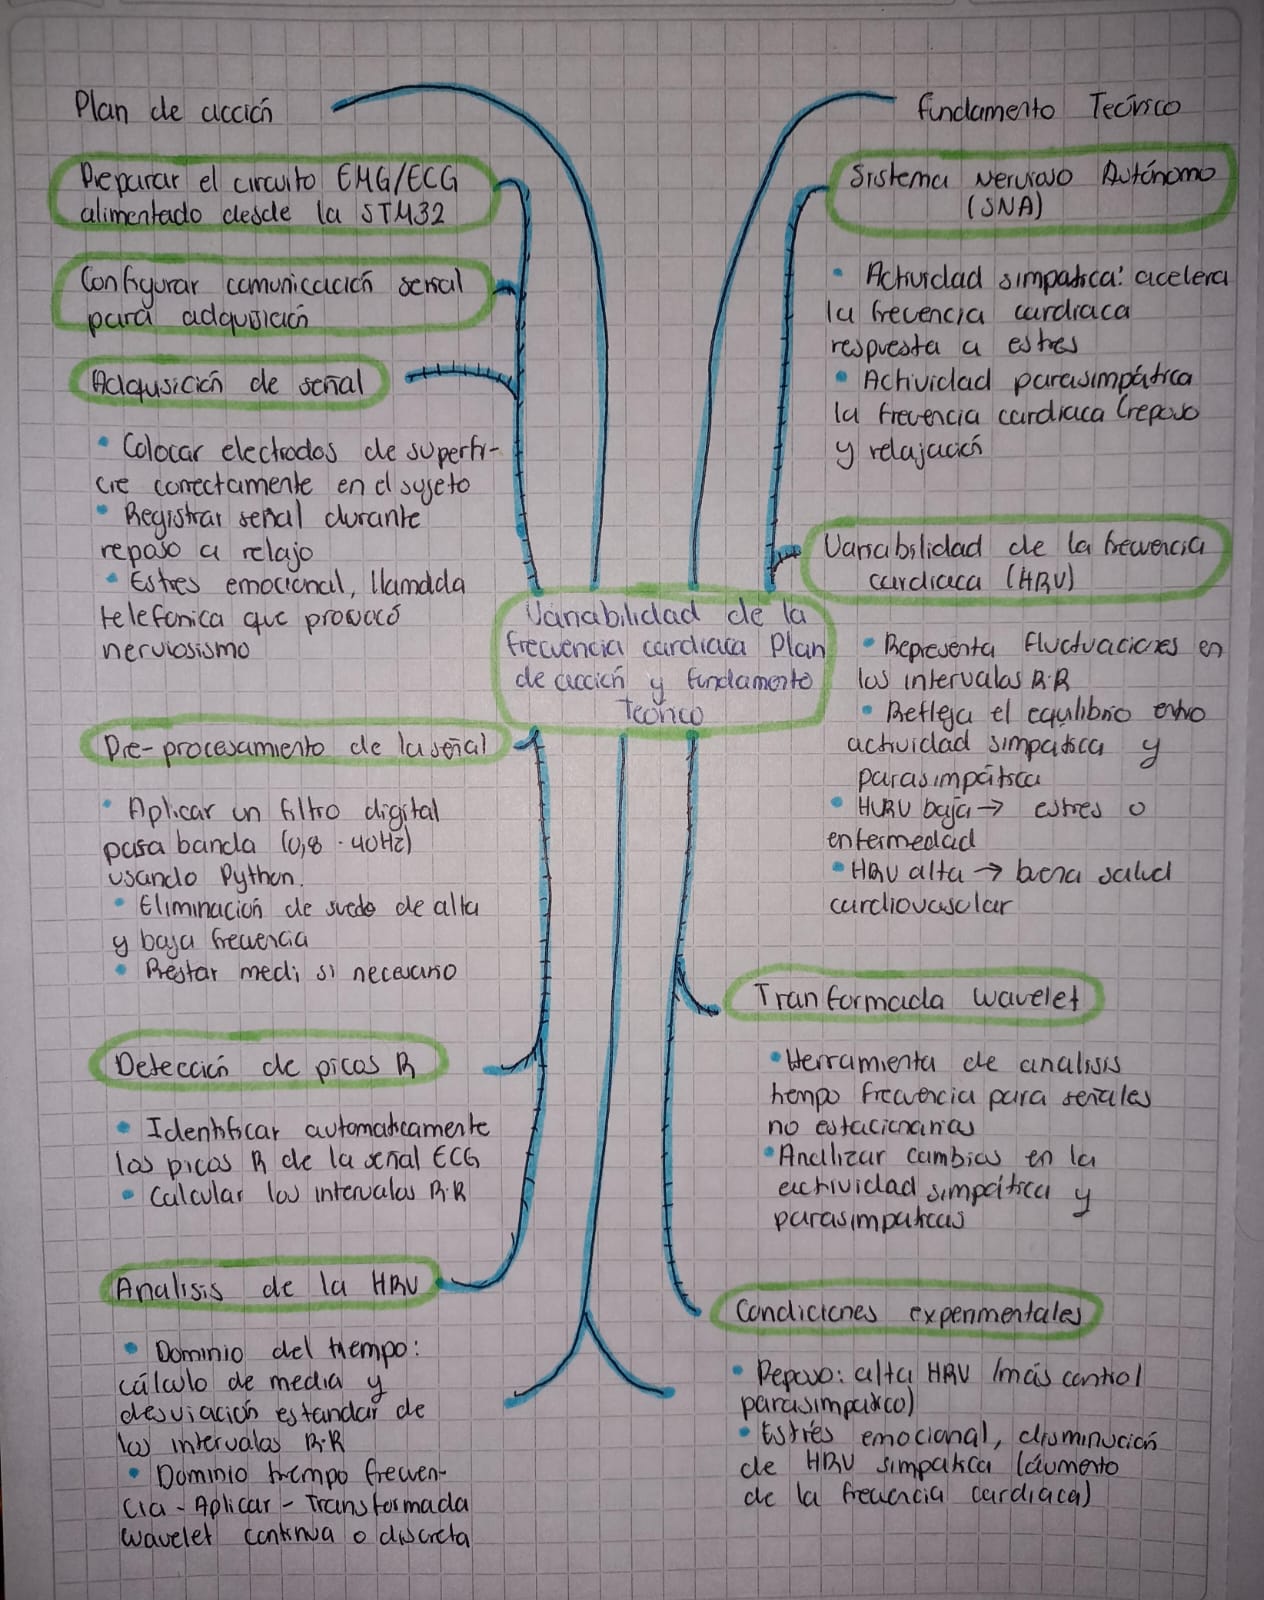 Plan de acción
Preparar el circuito EMG/ECG
alimentado desde la STM32
Configurar comunicación serial
para adquisición
Adqusición de señal
• Colocar electrodos de superfi-
cie correctamente en el sujeto
• Registrar señal durante
reposo a relajo
• Estres emocional, llamada
telefonica que provocó
nerviosismo
Pre-procesamiento de la señal
• Aplicar un filtro digital
pasa banda (0,8 - 40Hz)
usando Python.
• Eliminación de de alta
y baja frecuencia
• Restar medi si necesario
Detección de picos R
• Identificar automaticamente
los picos R de la señal ECG
• Calcular los intervalos R-R
Analisis de la HRV
• Dominio del tiempo:
cálculo de media y
desviación estandar de
los intervalos R-R
• Dominio tiempo frecuen-
cia - Aplicar - Transformada
wavelet continua o discreta
Variabilidad de la
frecuencia cardiaca Plan
de acción y fundamento
Teorico
Fundamento Teórico
Sistema Nervioso Autónomo
(SNA)
• Actividad simpatica: acelera
la frecuencia cardiaca
respuesta a estres
• Actividad parasimpática
la frecuencia cardiaca (reposo
y relajación
Variabilidad de la frecuencia
cardiaca (HRV)
• Representa fluctuaciones en
los intervalos R-R
• Refleja el equlibrio entre
actividad simpatica y
parasimpática
• HRV baja → estres o
enfermedad
• HRV alta → buena salud
cardiovascular
Tranformada wavelet
• Herramienta de analisis
tiempo frecuencia para señales
no estacionarias
• Analizar cambios en la
actividad simpática y
parasimpaticas
Condiciones experimentales
• Reposo: alta HRV (más control
parasimpatico)
• Estrés emocional, disminución
de HRV simpatica (aumento
de la frecuencia cardiaca)